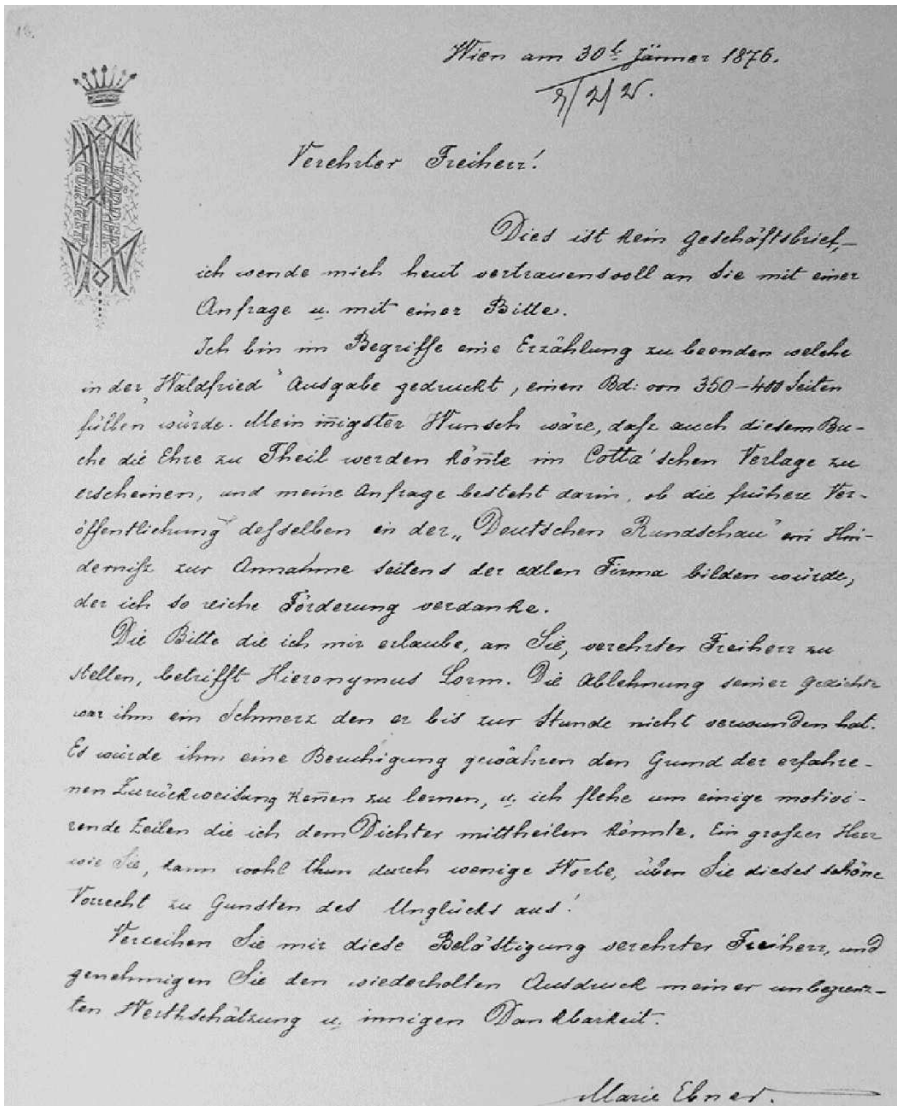 18.
Wien am 30t Jänner 1876.
Verehrter Freiherr!
Dies ist kein Geschäftsbrief,–
ich wende mich heut vertrauensvoll an Sie mit einer
Anfrage u. mit einer Bitte.
Ich bin im Begriffe eine Erzählung zu beenden welche
in der „Waldfried" Ausgabe gedruckt, einen Bd: von 350–400 Seiten
füllen würde. Mein iñigster Wunsch wäre, daß auch diesem Bu-
che die Ehre zu Theil werden kön̄te im Cotta'schen Verlage zu
erscheinen, und meine Anfrage besteht darin, ob die frühere Ver-
öffentlichung desselben in der „Deutschen Rundschau" ein Hin-
derniß zur Annahme seitens der edlen Firma bilden würde,
der ich so reiche Förderung verdanke.
Die Bitte die ich mir erlaube, an Sie, verehrter Freiherr zu
stellen, betrifft Hieronymus Lorm. Die Ablehnung seiner Gedichte
war ihm ein Schmerz den er bis zur Stunde nicht verwunden hat.
Es würde ihm eine Beruhigung gewähren den Grund der erfahre-
nen Zurückweisung keñen zu lernen, u. ich flehe um einige motivi-
rende Zeilen die ich dem Dichter mittheilen könnte. Ein großer Herr
wie Sie, kann wohl thun durch wenige Worte, üben Sie dieses schöne
Vorrecht zu Gunsten des Unglücks aus!
Verzeihen Sie mir diese Belästigung verehrter Freiherr, und
genehmigen Sie den wiederholten Ausdruck meiner unbegrenz-
ten Werthschätzung u. innigen Dankbarkeit.
Marie Ebner.